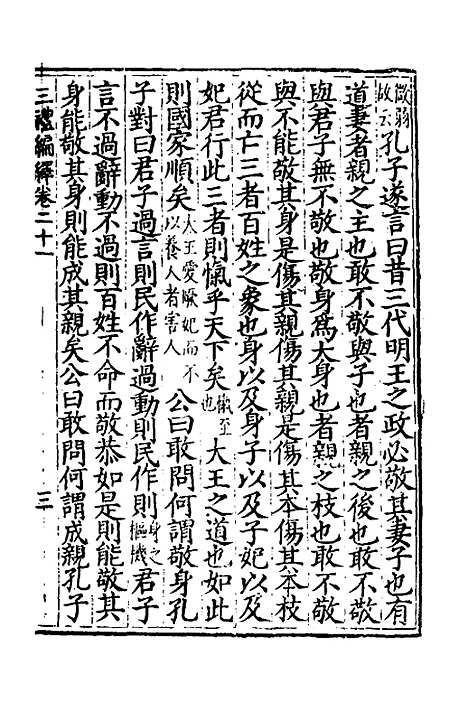 微弱故云孔子遂言曰昔三代明王之政必敬其妻子也有
道妻者親之主也敢不敬與子也者親之後也敢不敬
與君子無不敬也敬身爲大身也者親之枝也敢不敬
與不能敬其身是傷其親傷其親是傷其本傷其本枝
從而亡三者百姓之象也身以及身子以及子妃以及
妃君行此三者則愾乎天下矣愾至也大王之道也如此
則國家順矣大王愛厥妃而不以養人者害人公曰敢問何謂敬身孔
子對曰君子過言則民作辭過動則民作則身之樞機君子
言不過辭動不過則百姓不命而敬恭如是則能敬其
身能敬其身則能成其親矣公曰敢問何謂成親孔子
三禮編繹卷二十一
三